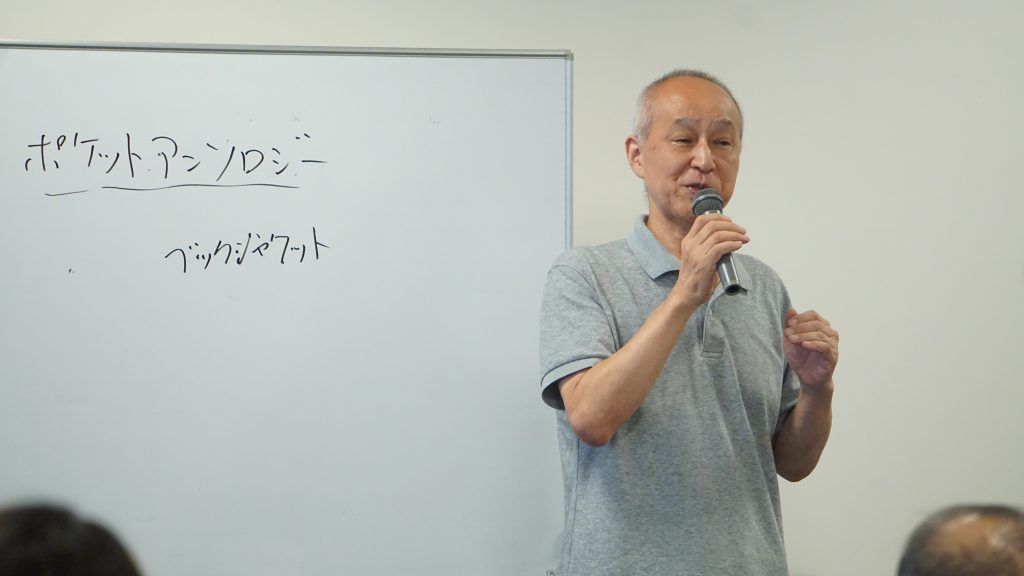 ポケット.アンソロジー
ベックジャケット